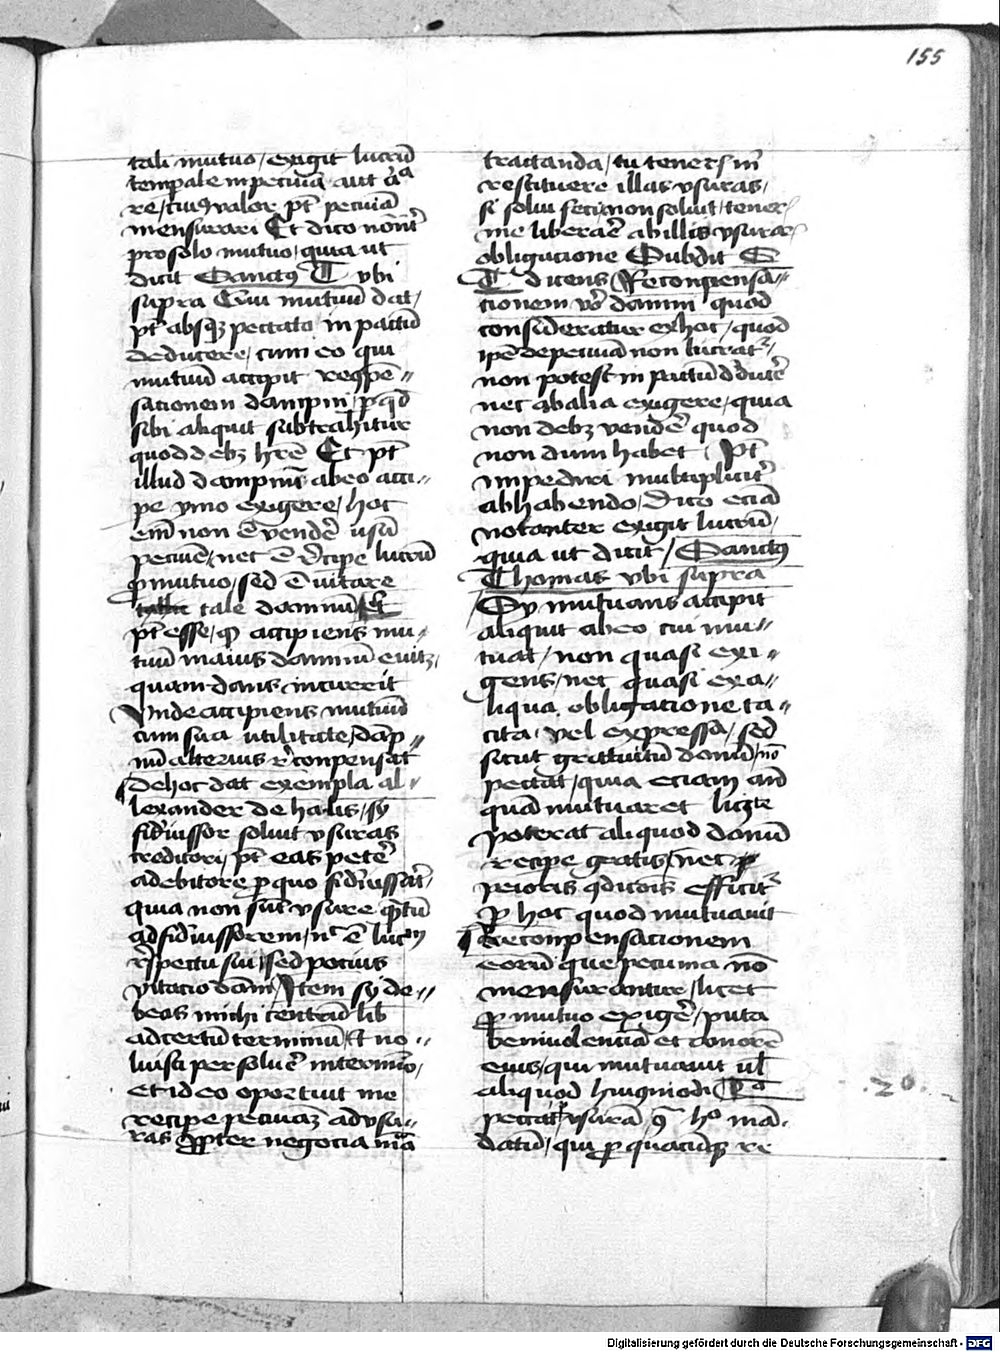 155
tali mutuo / exigit lucrũ
tempale in pecuniã aut aliã
rẽ / cuiꝰ valor pt̃ pecuniã
mensurari Et dico nõnt̃
pro solo mutuo / quia ut
dicit Sanctus T ubi
supra Cum mutuũ dat /
pt̃ absqꝫ peccato in pactũ
deducere / cum eo qui
mutuũ accipit recõpẽ〃
sationem dampni / p qd̃
sibi aliquit subtrahitur
quod debꝫ hr̃e Et pt̃
illud dampnũ ab eo acci〃
pe ymo exigere / hoc
em̃ non ẽ vendẽ usũ
pecunie / nec ẽ recipe lucrũ
p mutuo / sed ẽ uitare
tale damnũ / Et
pt̃ esse / qꝫ accipiens mu〃
tuũ maius damnũ euitꝫ
quam dans incurrit
Unde accipiens mutuũ
cum sua utilitate / dãp〃
nũ alterius rẽconpensat
De hoc dat exempla al〃
lexander de halis / sy
fideiussor soluit vsuras
creditori pt̃ eas petẽ
a debitore p quo fideiussit /
quia non sũt vsure q̃tũ
ad fideiussorem / nec ẽ lucrũ
respectu sui / sed potius
vitacio dãni / Item sy de〃
beas michi centũ lib̃
ad certũ terminũ / et no〃
luisti persoluẽ in termĩo /
et ideo oportuit me
recipe pecuniã ad vsu〃
ras ppter negocia mea
tractanda / tu teneris m̃
restituere illas vsuras /
si solui / si non solui / tener̃
me liberãe ab illis vsurar
obligacione Subdit S
T dicens Recompensa〃
tionem vero dãmni quod
consideratur ex hoc / quod
ipẽ de pecuniã non lucrat̃ /
non potest in pactũ deducẽ
nec ab alia exigere / quia
non debꝫ vendẽ quod
non dum habet / Pt̃
impediri multipliciter
ab habendo / Dico eciã
notanter exigit lucrũ /
quia ut dicit / Sanctus
Thomas vbi supra
Sy mutuans accipit
aliquit ab eo cui mu〃
tuat / non quasi exi〃
gens / nec quasi ex a〃
liqua obligatione ta〃
cita / vel expressa / sed
sicut gratuitũ donũ / nõ
peccat / quia eciam anẽ
quã mutuaret licite
poterat aliquod donũ
recipe gratis / nec
peioris ꝯdicõnis efficit̃
p hoc quod mutuauit
Recompensacionem
eorũ que pecunia nõ
mensurantur / licet
p mutuo exigẽ / puta
beniuolenciã et amorẽ
eius / qui mutuauit vl̃
aliquod huiusmodi
peccat vsurã ꝯ̃ hᵒ mã〃
datũ / qui p quacũqꝫ re
.20.
Digitalisierung gefördert durch die Deutsche Forschungsgemeinschaft - DFG